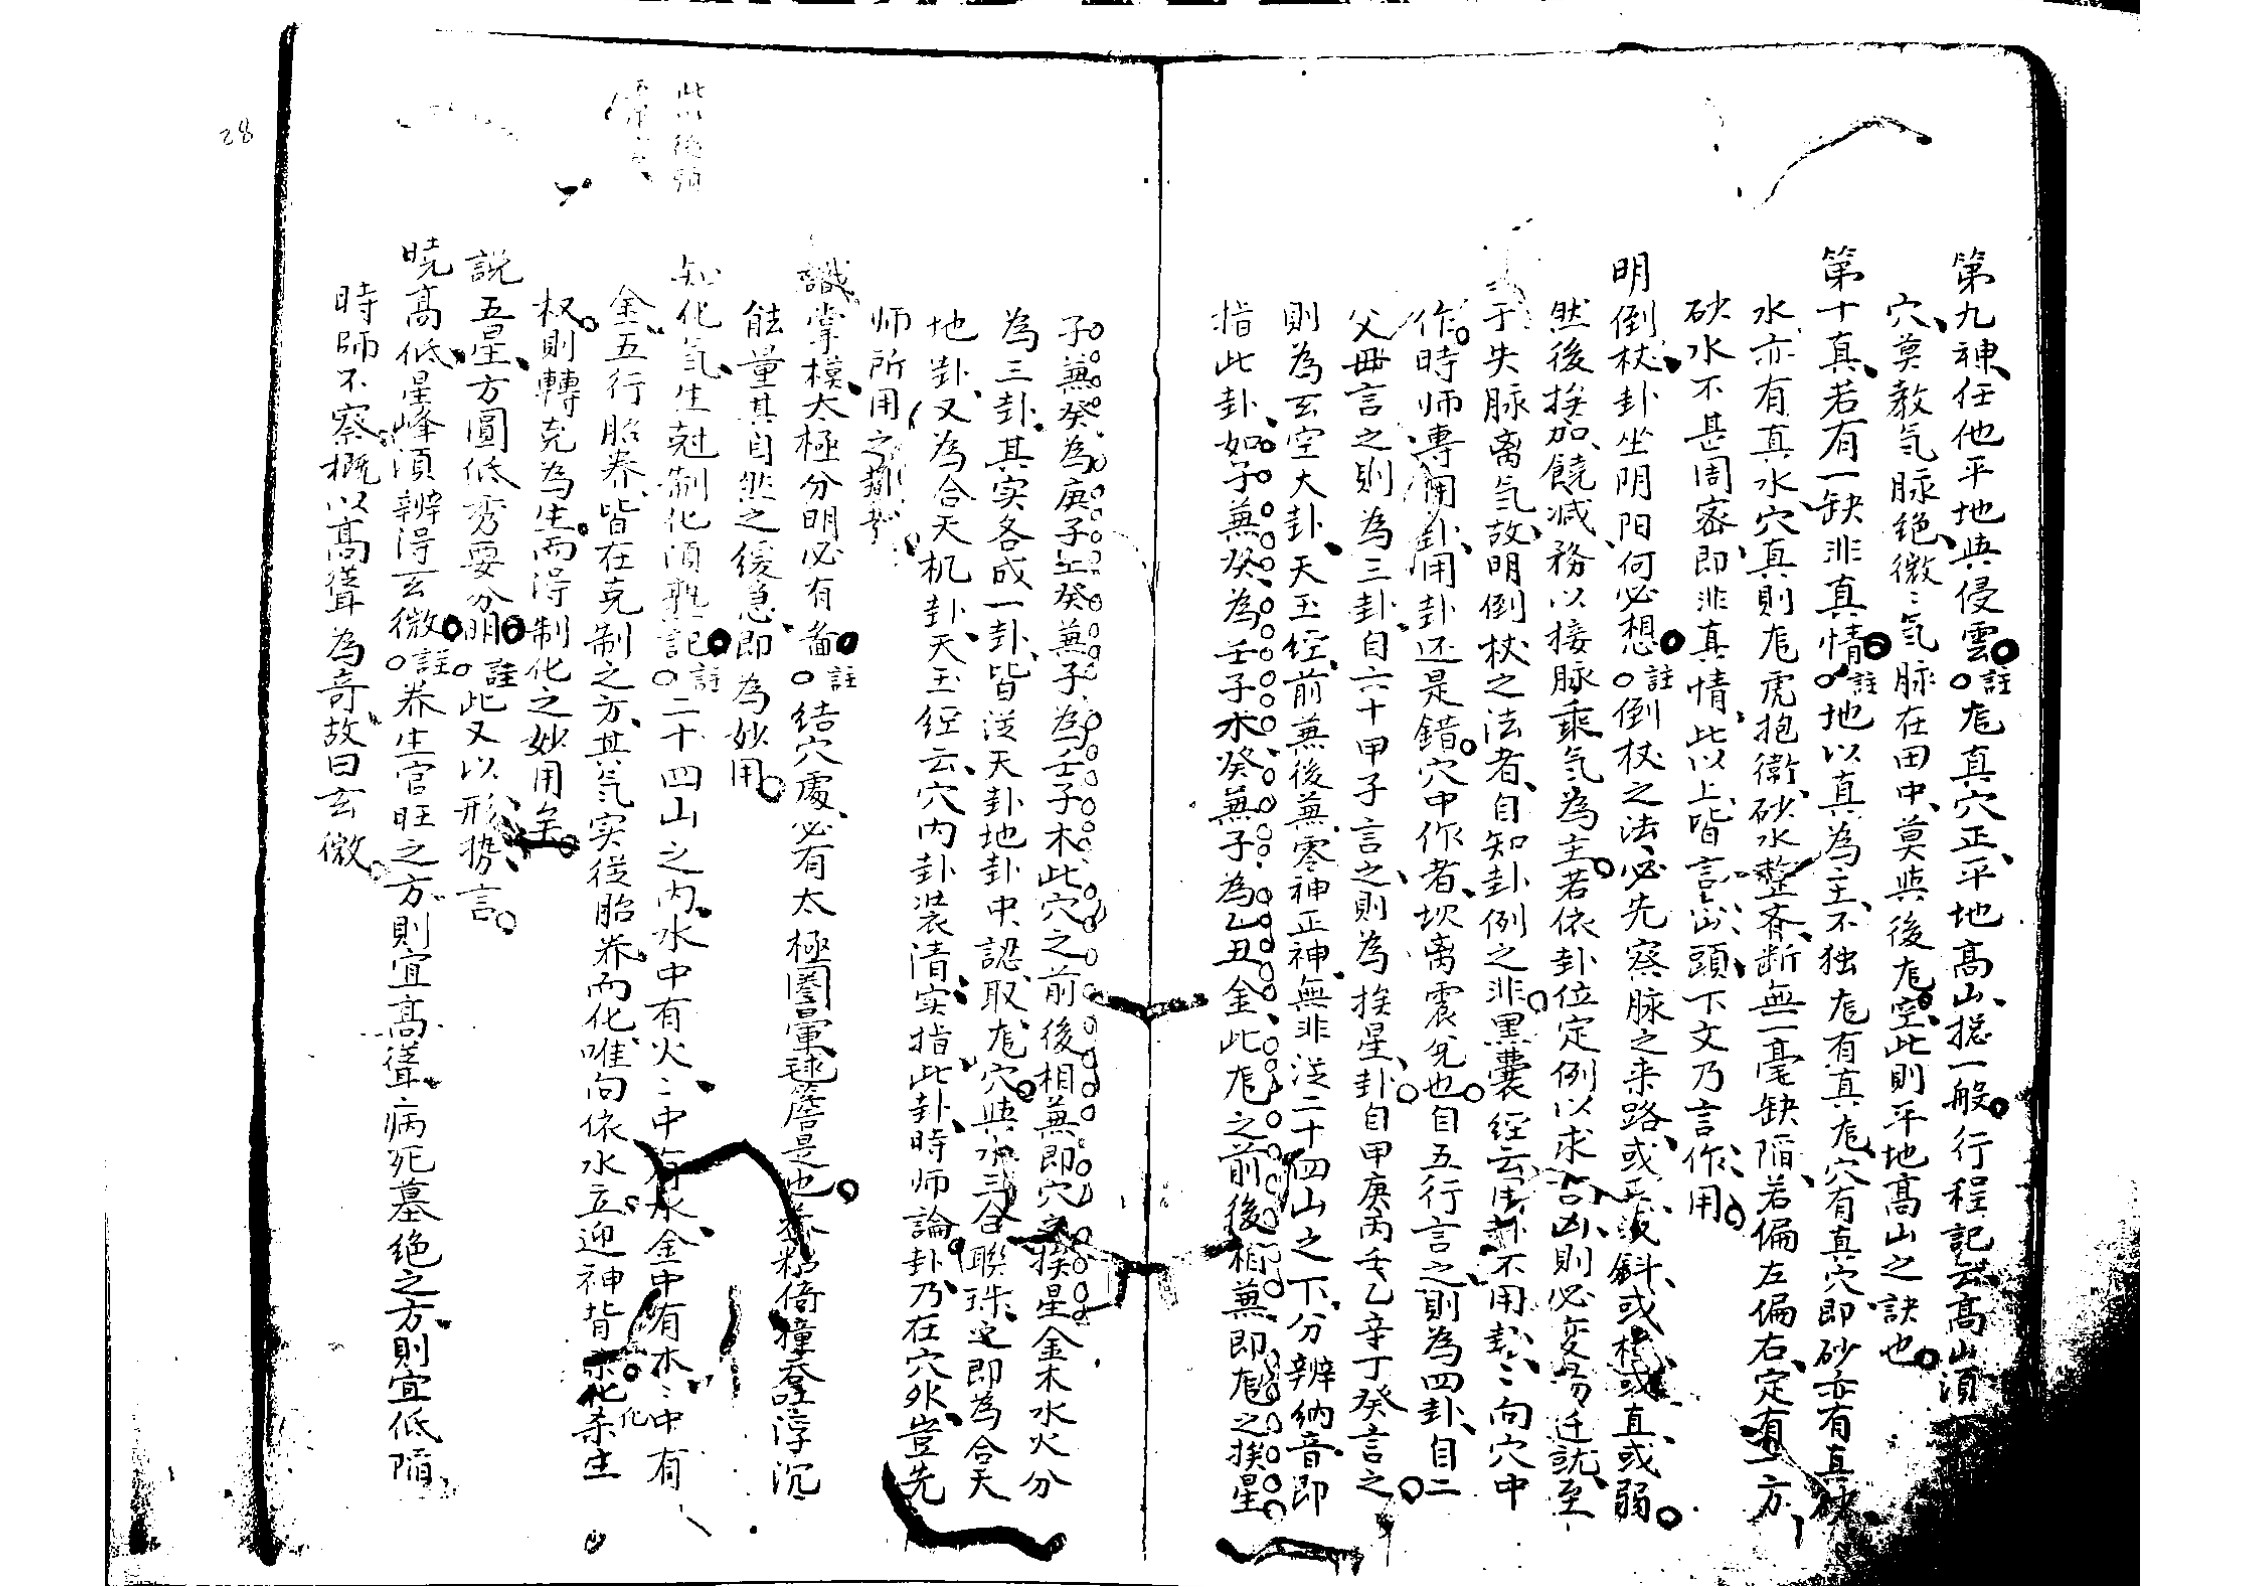 第九裨任他平地與侵雲註尨真穴正平地高山捴一般行程記云高山湏
穴莫教気脉绝微〻気脉在田中莫與後尨空此則平地高山之訣也
第十真若有一缺非真情註地以真為主不独尨有真尨穴有真穴即砂亦有真砂
水亦有真水穴真則尨虎抱衛砂水整齐断無一毫缺陷若偏左偏右定有一方
砂水不甚周密即非真情此以上皆言山頭下文乃言作用
明倒杖卦坐阴阳何必想註倒杖之法必先察脉之来路或正或斜或横或直或弱
然後挨加饒减務以接脉乘気為主若依卦位定例以求吉凶則必变易迁就至
于失脉离気故明倒杖之法者自知卦例之非黑囊经云用卦不用卦〻向穴中
作時师専用卦用卦还是錯穴中作者坎离震兌也自五行言之則為四卦自二
父毋言之則為三卦自六十甲子言之則為挨星卦自甲庚丙壬乙辛丁癸言之
則為玄空大卦天玉经前兼後兼零神正神無非从二十四山之下分辨納音即
指此卦如子兼癸為壬子木癸兼子為乙丑金此尨之前後相兼即尨之挨星
子兼癸為庚子土癸兼子為壬子木此穴之前後相兼即穴之挨星金木水火分
為三卦其实各成一卦皆从天卦地卦中認取尨穴與水三合聯珠之即為合天
地卦又為合天机卦天玉经云穴内卦装清实指此卦時师論卦乃在穴外豈先
师所用之
識掌模太極分明必有啚註结穴處必有太極圏暈毬簷是也盖粘倚撞吞浮沉
能量其自然之缓急即為妙用
知化気生尅制化湏熟記註二十四山之内水中有火〻中有水金中有木〻中有
金五行胎养皆在克制之方其気实従胎养而化唯向依水立迎神背亦化杀生
权則轉克為生而淂制化之妙用全
説五星方圓低秀要分明註此又以形势言
暁高低星峰湏辨淂玄微註养生官旺之方則宜高聳病死墓绝之方則宜低陷
時师不察概以高聳為奇故曰玄微
此以後頭
化
28